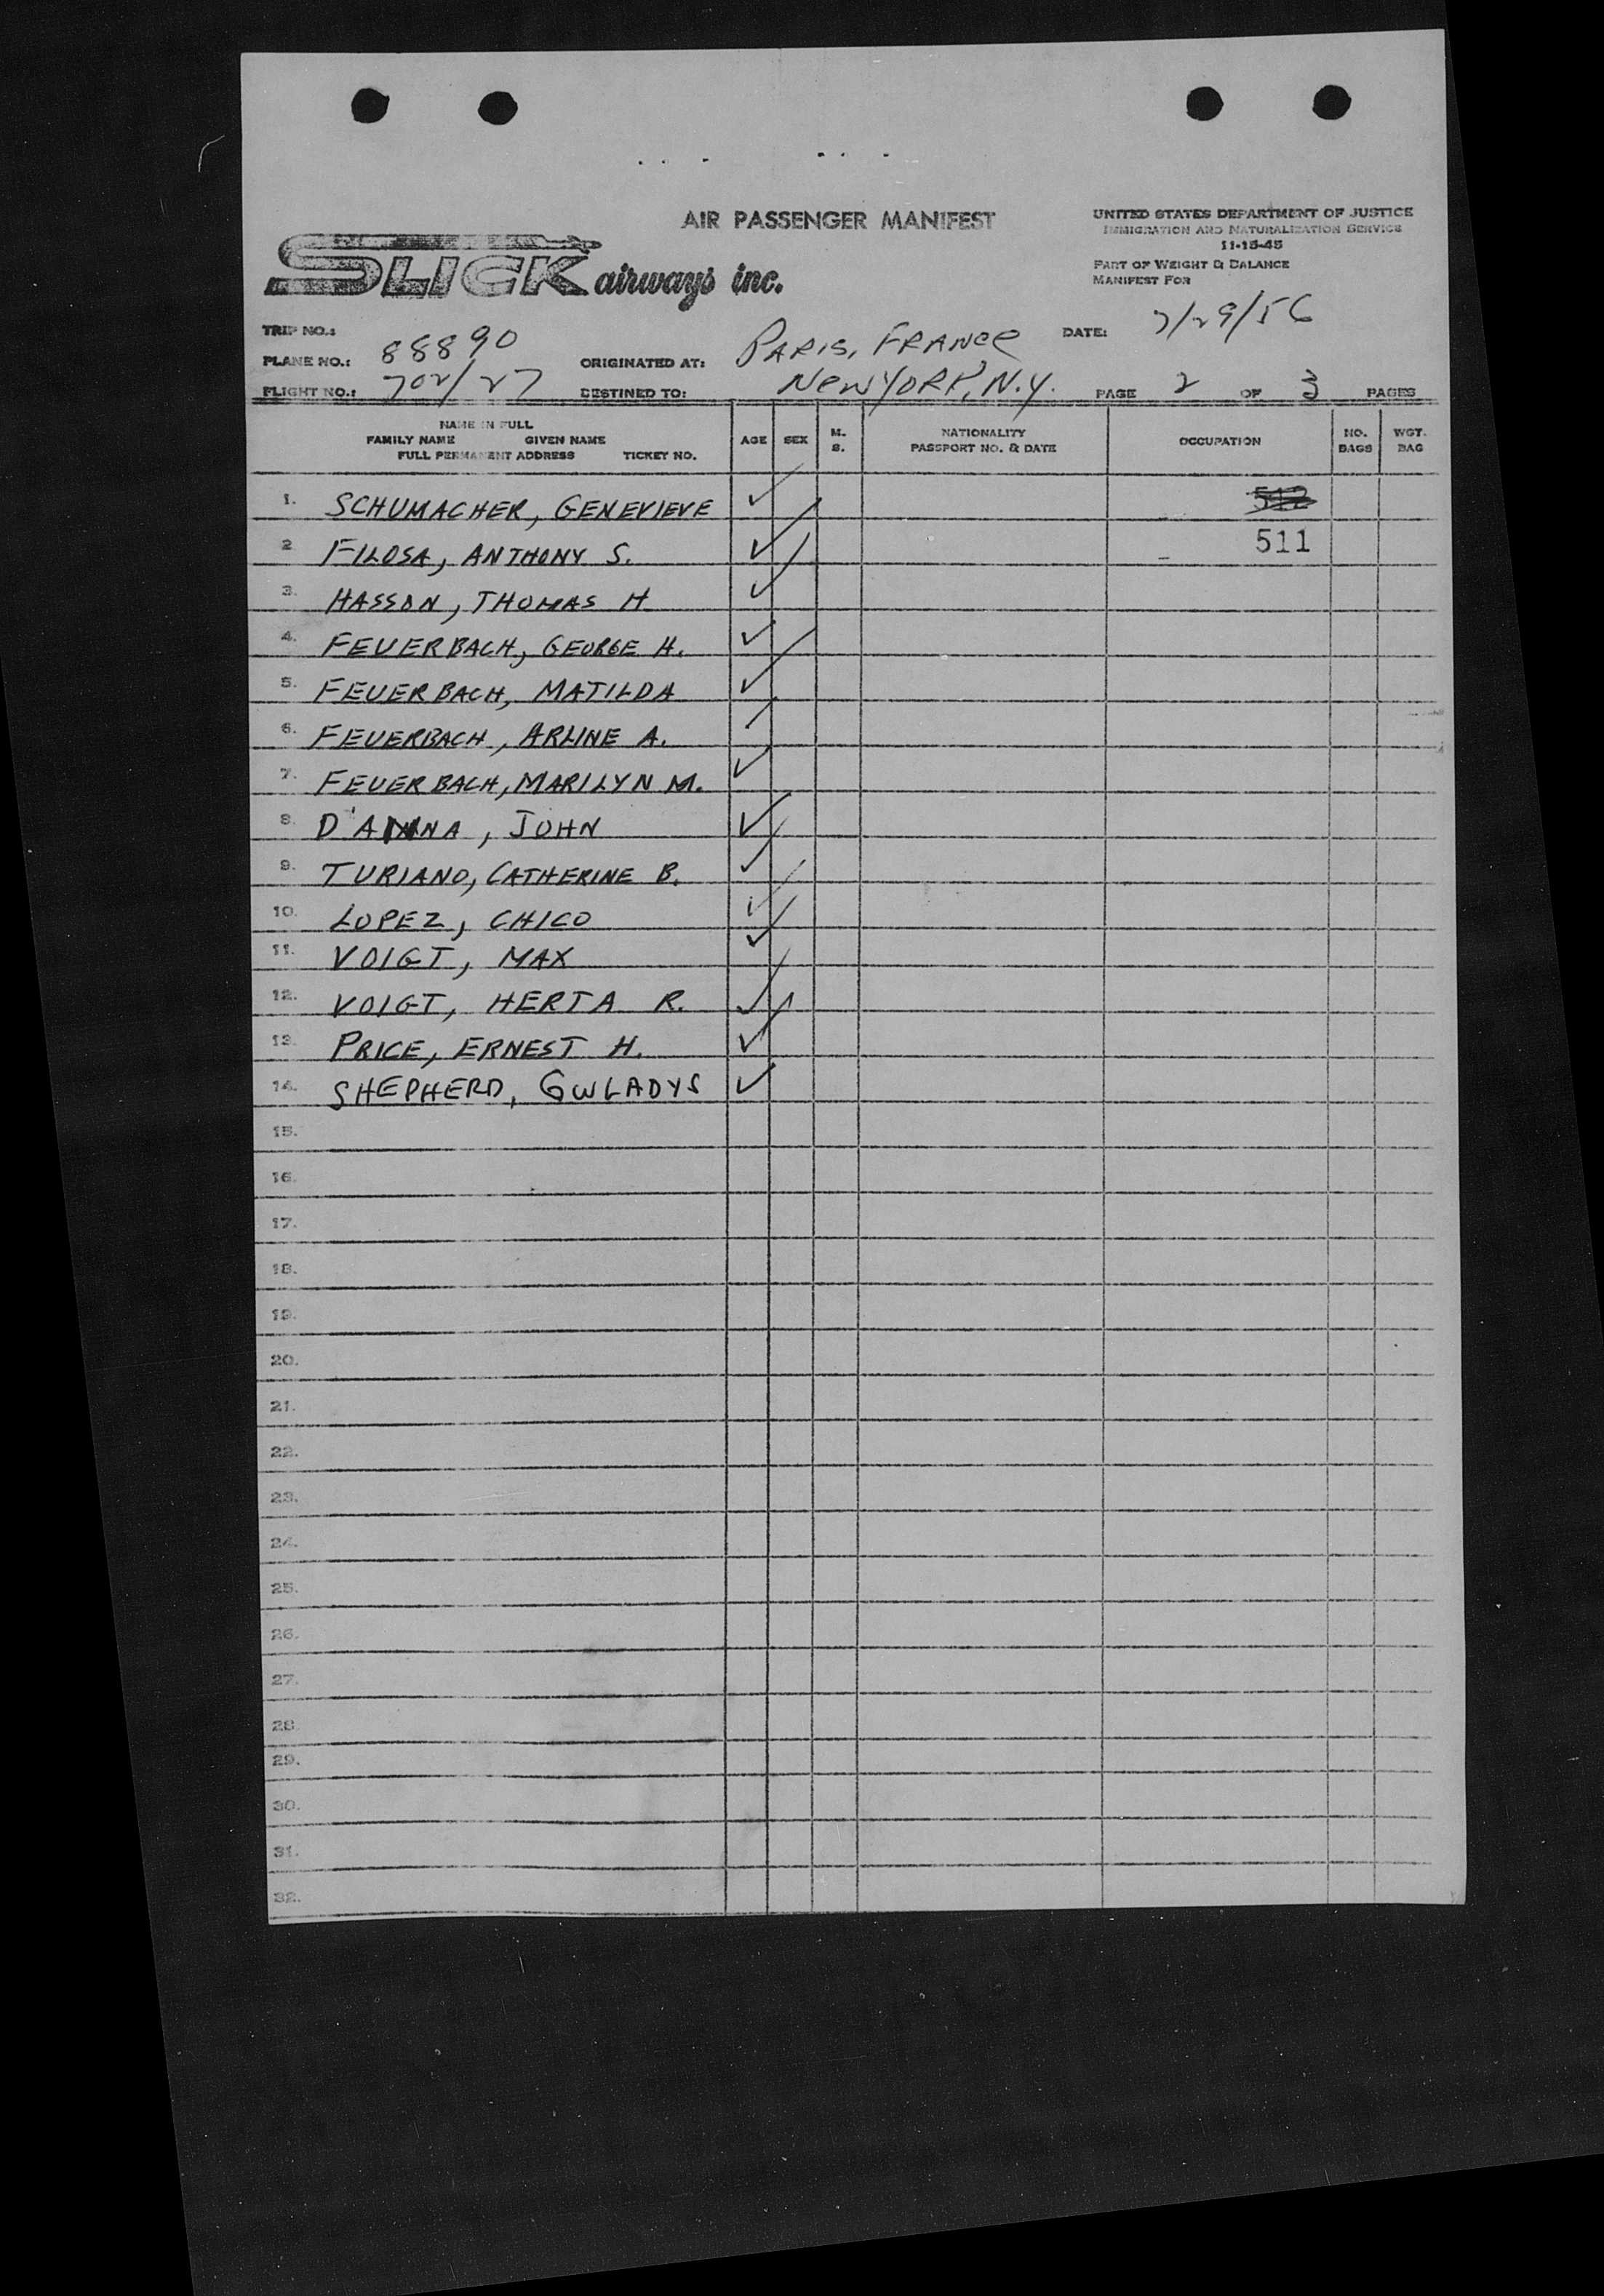 AIR PASSENGER MANIFEST
UNITED STATES DEPARTMENT OF JUSTICE
IMMIGRATION AND NATURALIZATION SERVICE
11-15-45
PART OF WEIGHT & BALANCE
MANIFEST FOR
SLICK airways inc.
TRIP NO.:
DATE: 7/29/56
PLANE NO.: 88890 ORIGINATED AT: PARIS, FRANCE
FLIGHT NO.: 702/27 DESTINED TO: NEW YORK, N.Y. PAGE 2 OF 3 PAGES
NAME IN FULL
FAMILY NAME GIVEN NAME
FULL PERMANENT ADDRESS TICKET NO.
AGE SEX M. S. NATIONALITY PASSPORT NO. & DATE OCCUPATION NO. BAGS WGT. BAG
1. SCHUMACHER, GENEVIEVE ✓ 512
2 FILOSA, ANTHONY S. ✓ 511
3. HASSON, THOMAS H ✓
4. FEUERBACH, GEORGE H. ✓
5. FEUERBACH, MATILDA ✓
6. FEUERBACH, ARLINE A. ✓
7. FEUERBACH, MARILYN M. ✓
8. D'ANNA, JOHN ✓
9. TURIANO, CATHERINE B. ✓
10. LOPEZ, CHICO ✓
11. VOIGT, MAX ✓
12. VOIGT, HERTA R. ✓
13. PRICE, ERNEST H. ✓
14. SHEPHERD, GWLADYS ✓
15.
16.
17.
18.
19.
20.
21.
22.
23.
24.
25.
26.
27.
28
29.
30.
31.
32.